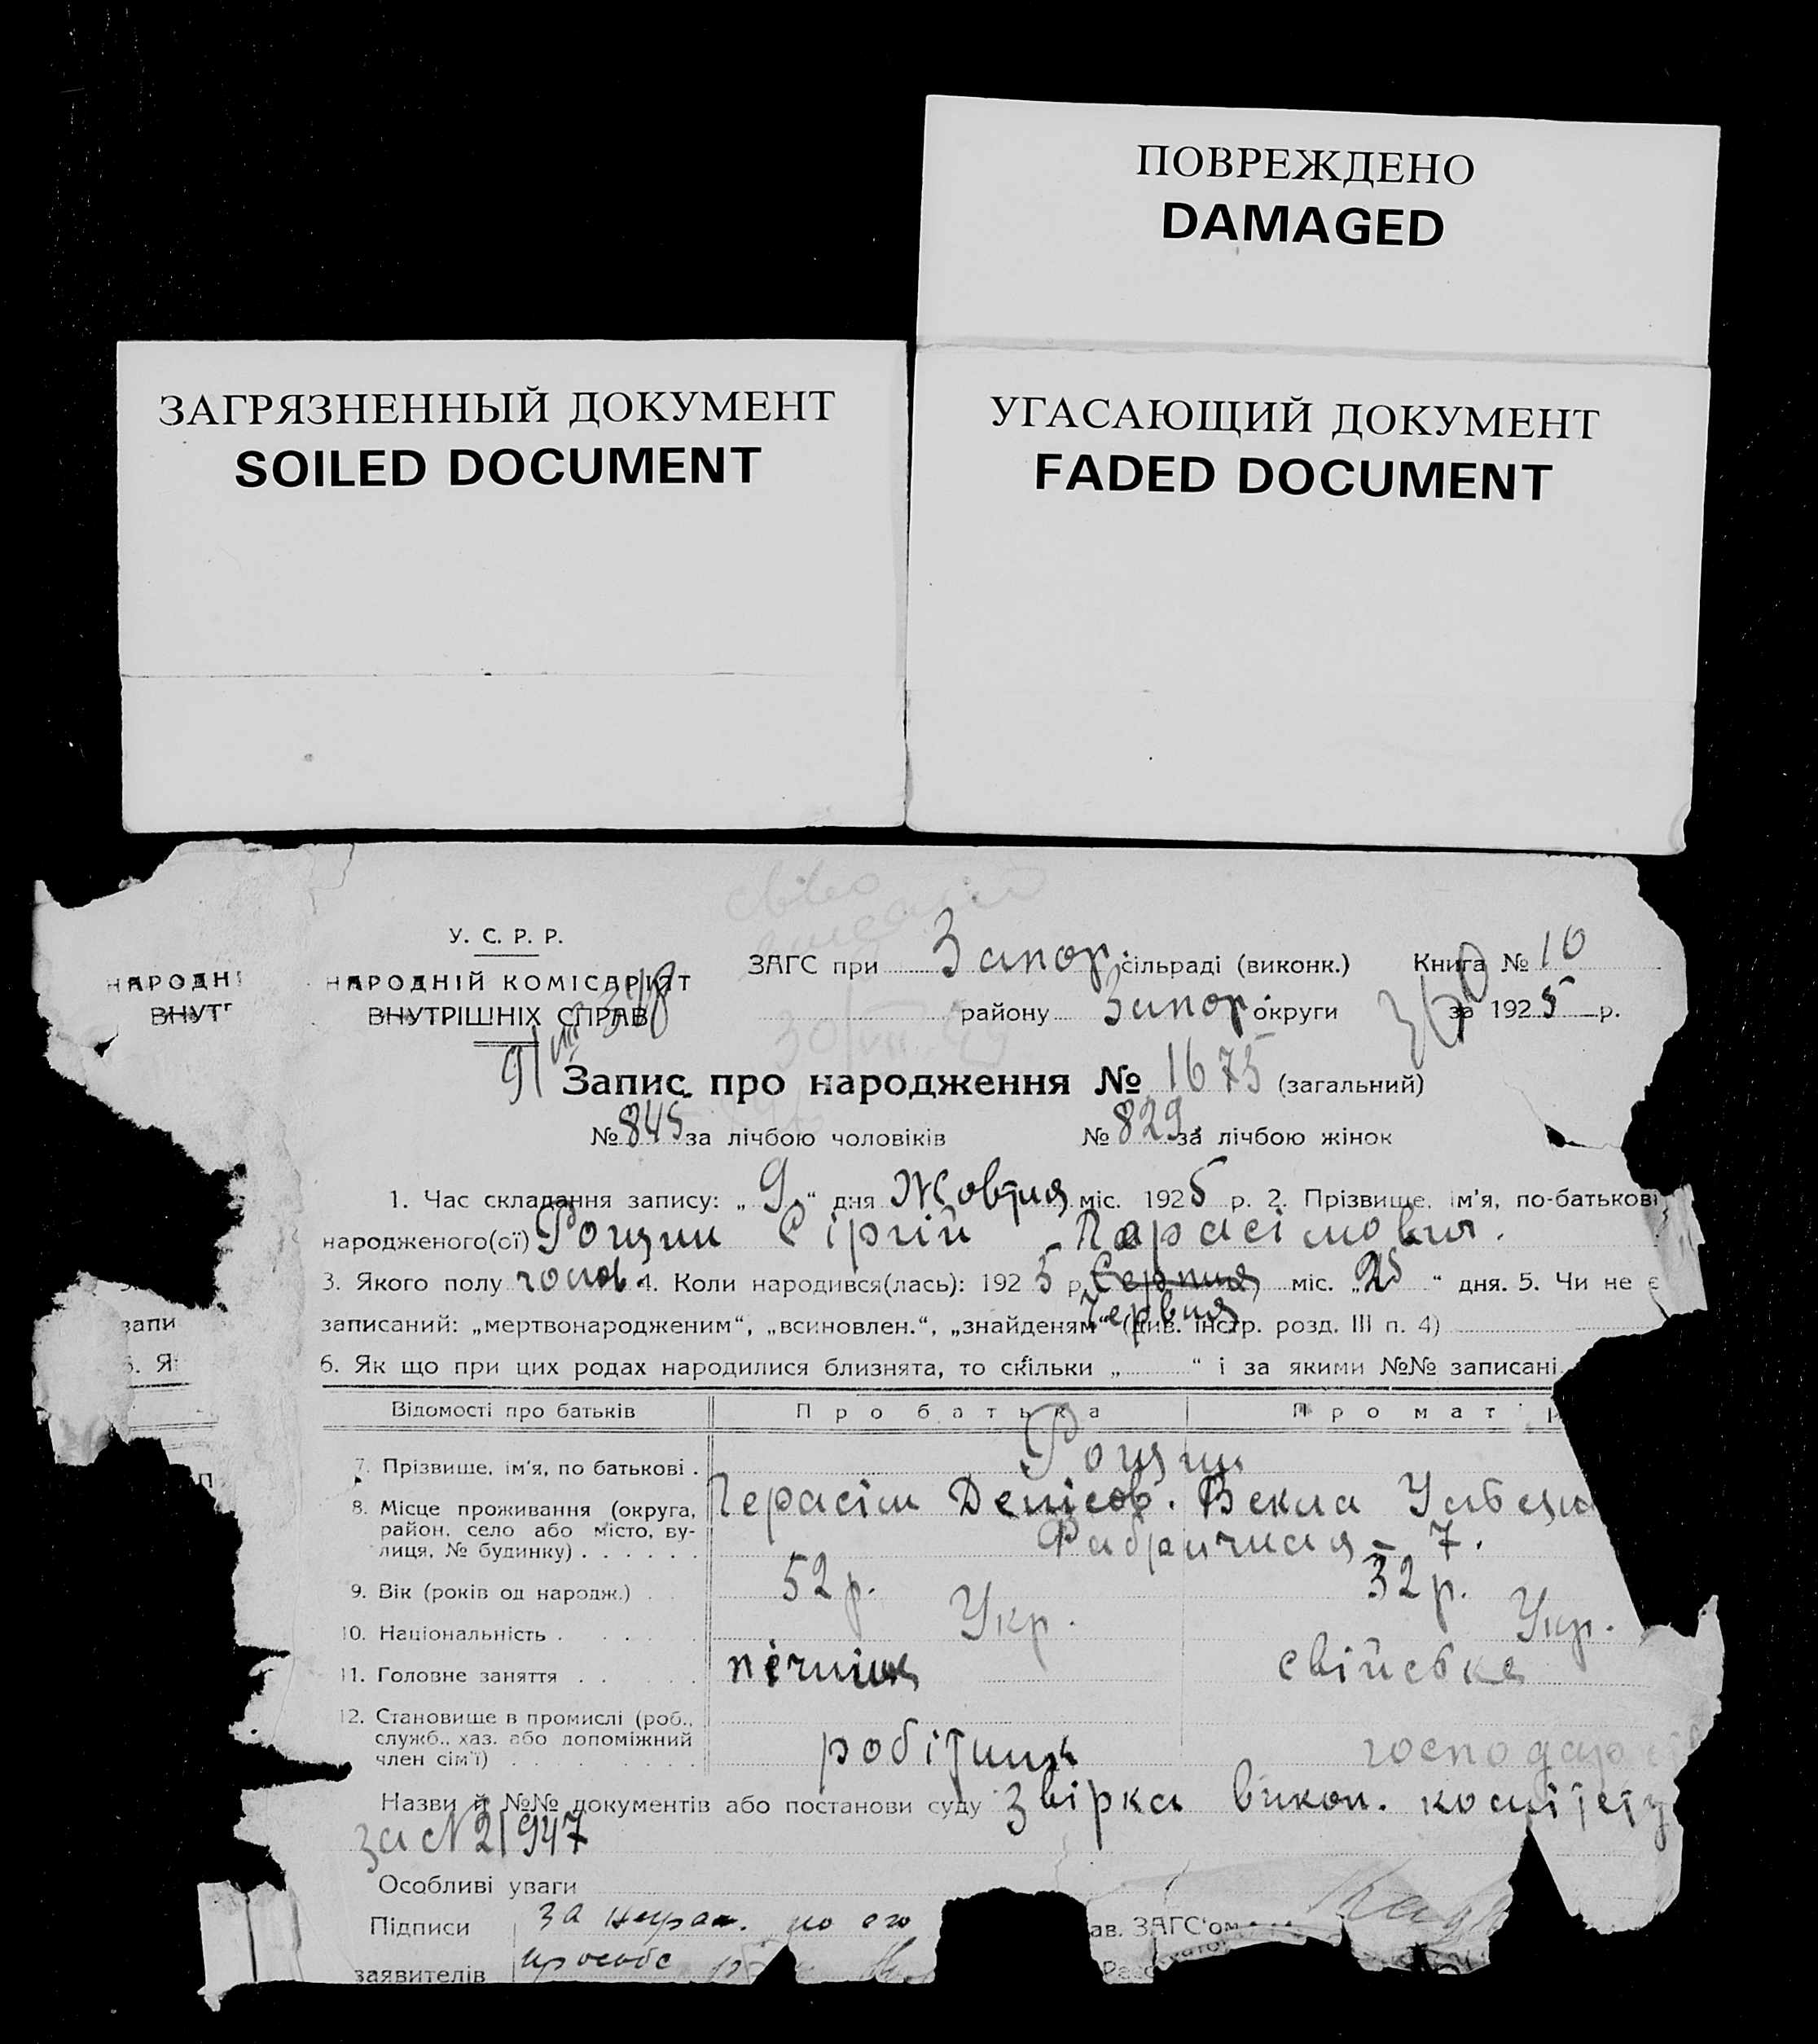 ПОВРЕЖДЕНО
DAMAGED
ЗАГРЯЗНЕННЫЙ ДОКУМЕНТ
SOILED DOCUMENT
УГАСАЮЩИЙ ДОКУМЕНТ
FADED DOCUMENT
У. С. Р. Р.
НАРОДНІЙ КОМІСАРІЯТ
ВНУТРІШНІХ СПРАВ
ЗАГС при Запор. сільраді (виконк.) Книга № 10
району Запор. округи за 1925 р.
Запис про народження № 1675 (загальний)
№ 845 за лічбою чоловіків № 829 за лічбою жінок
1. Час складання запису: „9“ дня Жовтня міс. 1925 р. 2. Прізвище, ім'я, по-батькові
народженого(ої) Рощин Сіргій Гарасімович.
3. Якого полу чолов. 4. Коли народився(лась): 1925 р. Серпня міс. „25“ дня. 5. Чи не є
Червня
записаний: „мертвонародженим“, „всиновлен.“, „знайденям“ (див. інстр. розд. III п. 4)
6. Як що при цих родах народилися близнята, то скільки „ “ і за якими №№ записані
Відомості про батьків Про батька Про мат
7. Прізвище, ім'я, по батькові . Рощин
8. Місце проживання (округа, Герасім Денісов. Векла
район, село або місто, ву-
лиця, № будинку) . . . . . . Фабричная – 7.
9. Вік (років од народж.) . . 52 р. 32 р.
10. Національність . . . . . Укр. Укр.
11. Головне заняття . . . . . пічник свійська
12. Становище в промислі (роб.,
служб., хаз. або допоміжний робітник господар
член сім'ї) . . . . .
Назви й №№ документів або постанови суду Звірка викон. комітету
за № 21947
Особливі уваги
Підписи за неграм. по его
заявителів просьбе
ав. ЗАГС'ом
НАРОДНІ
ВНУТ
запи